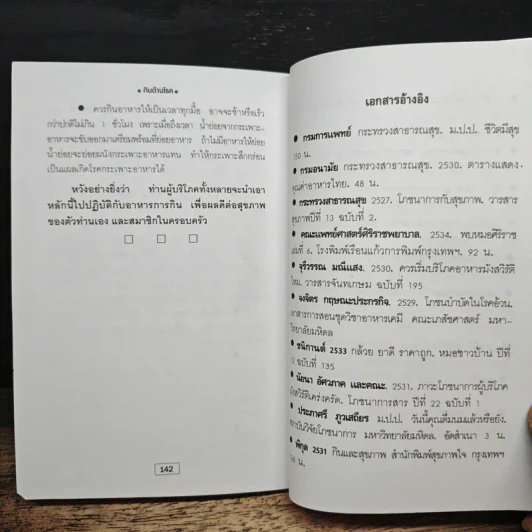 • กินต้านโรค •
● ควรกินอาหารให้เป็นเวลาทุกมื้อ อาจจะช้าหรือเร็ว
กว่าปกติไม่เกิน 1 ชั่วโมง เพราะเมื่อถึงเวลา น้ำย่อยจากกระเพาะ-
อาหารจะขับออกมาเตรียมพร้อมที่ย่อยอาหาร ถ้าไม่มีอาหารให้ย่อย
น้ำย่อยจะย่อยผนังกระเพาะอาหารแทน ทำให้กระเพาะสึกกร่อน
เป็นแผลเกิดโรคกระเพาะอาหารได้
หวังอย่างยิ่งว่า ท่านผู้บริโภคทั้งหลายจะนำเอา
หลักนี้ไปปฏิบัติกับอาหารการกิน เพื่อผลดีต่อสุขภาพ
ของตัวท่านเอง และสมาชิกในครอบครัว
142
เอกสารอ้างอิง
● กรมการแพทย์ กระทรวงสาธารณสุข. ม.ป.ป. ชีวิตมีสุข
50 น.
● กรมอนามัย กระทรวงสาธารณสุข. 2530. ตารางแสดง
คุณค่าอาหารไทย. 48 น.
● กระทรวงสาธารณสุข 2527. โภชนาการกับสุขภาพ. วารสาร
สุขภาพปีที่ 13 ฉบับที่ 2.
● คณะแพทย์ศาสตร์ศิริราชพยาบาล. 2534. พบหมอศิริราช
เล่มที่ 6. โรงพิมพ์เรือนแก้วการพิมพ์กรุงเทพฯ. 92 น.
● จุรีวรรณ มณีแสง. 2530. ควรเริ่มบริโภคอาหารมังสวิรัติ
ไหม. วารสารจันทเกษม ฉบับที่ 195
● จงจิตร กฤษณะประกรกิจ. 2529. โภชนบำบัดในโรคอ้วน.
เอกสารการสอนชุดวิชาอาหารเคมี คณะเภสัชศาสตร์ มหา-
วิทยาลัยมหิดล
● ชนิกานต์ 2533 กล้วย ยาดี ราคาถูก. หมอชาวบ้าน ปีที่
ฉบับที่ 135
● นัยนา อัศวภาค และคณะ. 2531. ภาวะโภชนาการผู้บริโภค
มังสวิรัติเคร่งครัด. โภชนาการสาร ปีที่ 22 ฉบับที่ 1
● ประภาศรี ภูวเสถียร ม.ป.ป. วันนี้คุณดื่มนมแล้วหรือยัง.
สถาบันวิจัยโภชนาการ มหาวิทยาลัยมหิดล. อัดสำเนา 3 น.
● พิกุล 2531 กินและสุขภาพ สำนักพิมพ์สุขภาพใจ กรุงเทพฯ
น.